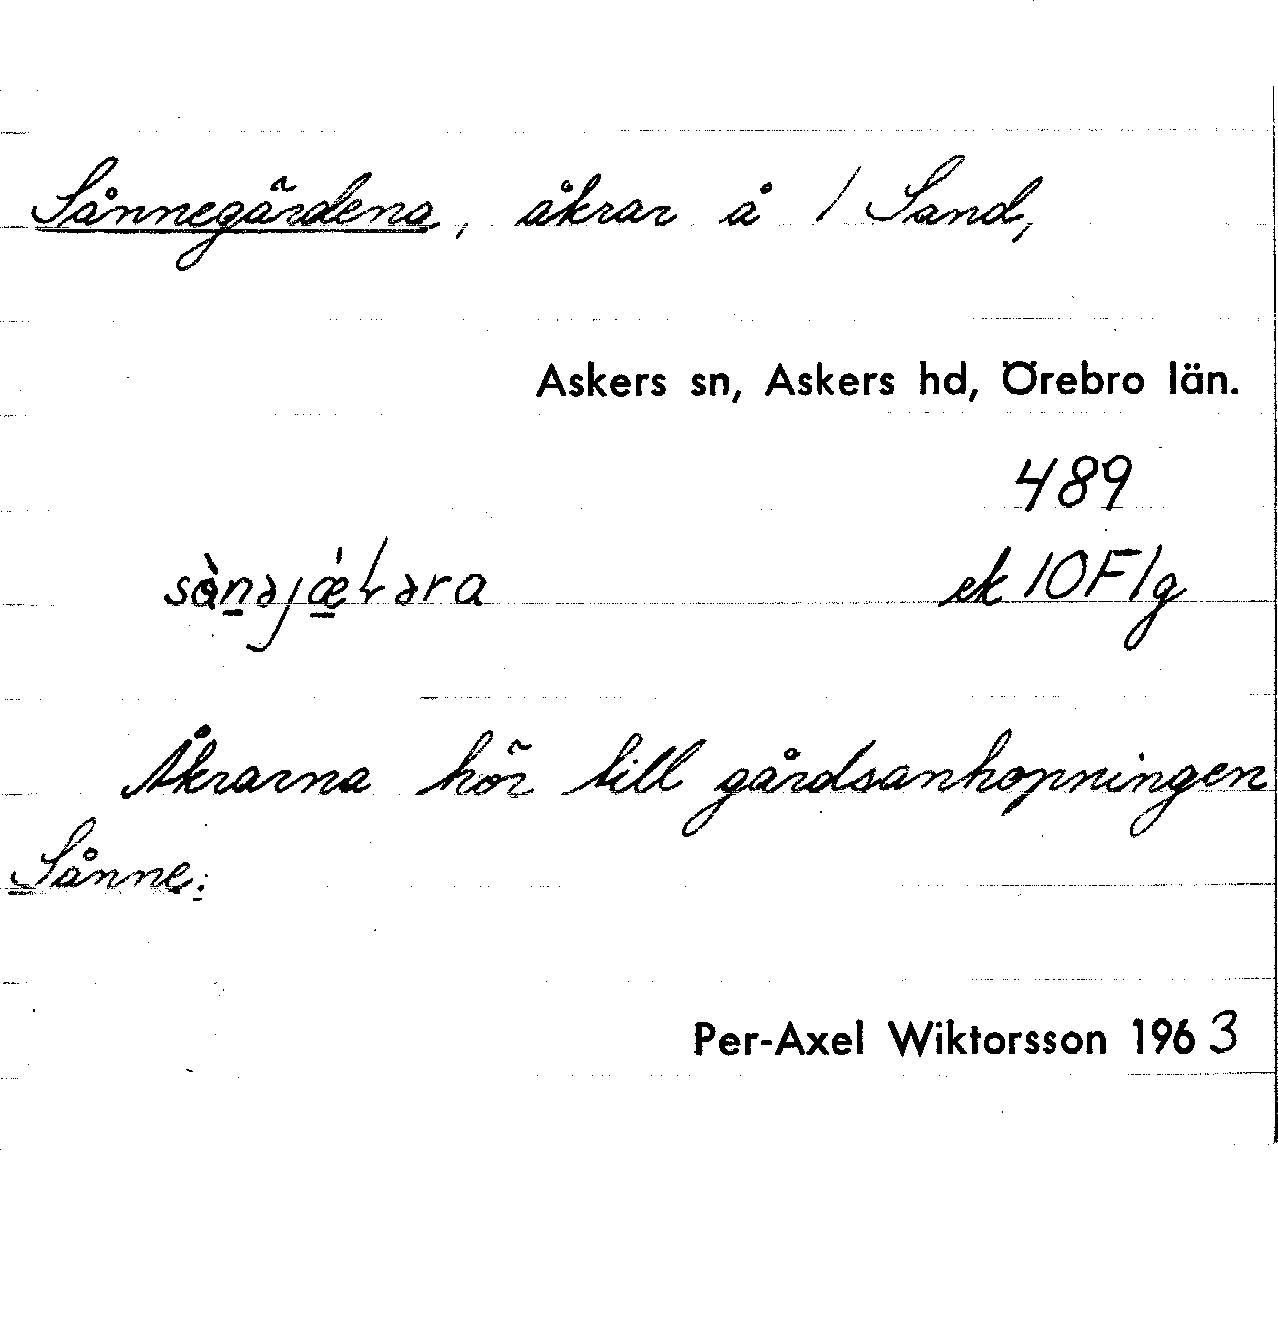 Sånnegärdena, åkrar å 1 Sand,
Askers sn, Askers hd, Örebro län.
489
ek 10F1g
Åkrarna hör till gårdsanhopningen
Sånne.
Per-Axel Wiktorsson 1963